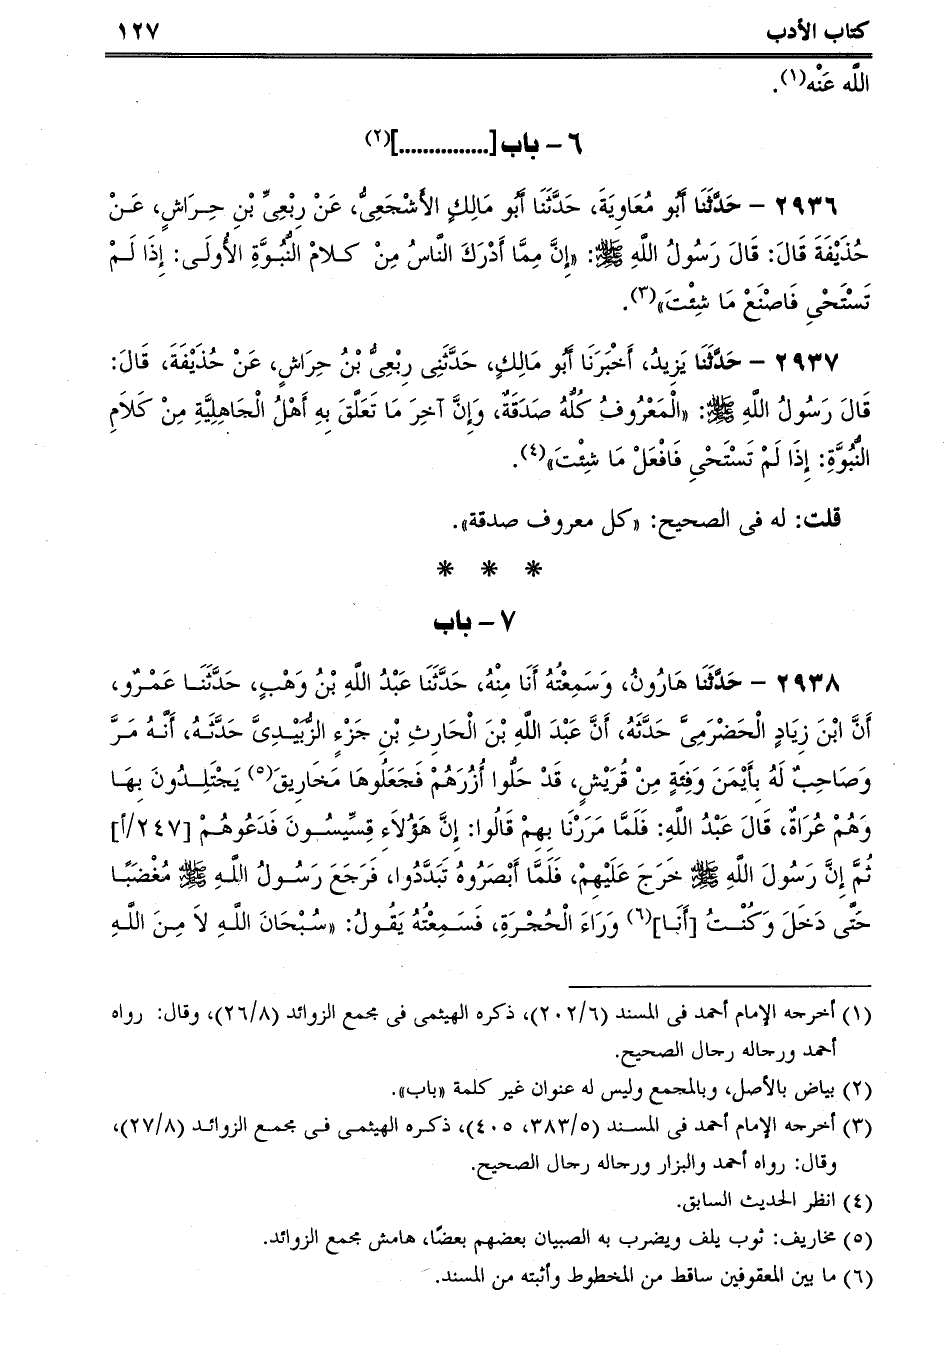 كتاب الأدب ١٢٧
اللَّه عَنْه(١).
٦ – باب [...............](٢)
٢٩٣٦ – حَدَّثَنَا أَبُو مُعَاوِيَةَ، حَدَّثَنَا أَبُو مَالِكٍ الأَشْجَعِىُّ، عَنْ رِبْعِىِّ بْنِ حِرَاشٍ، عَنْ
حُذَيْفَةَ قَالَ: قَالَ رَسُولُ اللَّهِ ﷺ: «إِنَّ مِمَّا أَدْرَكَ النَّاسُ مِنْ كَلامْ النُّبُوَّةِ الأُولَى: إِذَا لَمْ
تَسْتَحْىِ فَاصْنَعْ مَا شِئْتَ»(٣).
٢٩٣٧ – حَدَّثَنَا يَزِيدُ، أَخْبَرَنَا أَبُو مَالِكٍ، حَدَّثَنِى رِبْعِىُّ بْنُ حِرَاشٍ، عَنْ حُذَيْفَةَ، قَالَ:
قَالَ رَسُولُ اللَّهِ ﷺ: «الْمَعْرُوفُ كُلُّهُ صَدَقَةٌ، وَإِنَّ آخِرَ مَا تَعَلَّقَ بِهِ أَهْلُ الْجَاهِلِيَّةِ مِنْ كَلَامِ
النُّبُوَّةِ: إِذَا لَمْ تَسْتَحْىِ فَافْعَلْ مَا شِئْتَ»(٤).
قلت: له فى الصحيح: «كل معروف صدقة».
* * *
٧ – باب
٢٩٣٨ – حَدَّثَنَا هَارُونُ، وَسَمِعْتُهُ أَنَا مِنْهُ، حَدَّثَنَا عَبْدُ اللَّهِ بْنُ وَهْبٍ، حَدَّثَنَا عَمْرٌو،
أَنَّ ابْنَ زِيَادٍ الْحَضْرَمِىَّ حَدَّثَهُ، أَنَّ عَبْدَ اللَّهِ بْنَ الْحَارِثِ بْنِ جَزْءٍ الزُّبَيْدِىَّ حَدَّثَهُ، أَنَّهُ مَرَّ
وَصَاحِبٌ لَهُ بِأَيْمَنَ وَفِئَةٍ مِنْ قُرَيْشٍ، قَدْ حَلُّوا أُزُرَهُمْ فَجَعَلُوهَا مَخَارِيقَ(٥) يَجْتَلِدُونَ بِهَا
وَهُمْ عُرَاةٌ، قَالَ عَبْدُ اللَّهِ: فَلَمَّا مَرَرْنَا بِهِمْ قَالُوا: إِنَّ هَؤُلَاءِ قِسِّيسُونَ فَدَعُوهُمْ [٢٤٧/أ]
ثُمَّ إِنَّ رَسُولَ اللَّهِ ﷺ خَرَجَ عَلَيْهِمْ، فَلَمَّا أَبْصَرُوهُ تَبَدَّدُوا، فَرَجَعَ رَسُولُ اللَّهِ ﷺ مُغْضَبًا
حَتَّى دَخَلَ وَكُنْتُ [أَنَا](٦) وَرَاءَ الْحُجْرَةِ، فَسَمِعْتُهُ يَقُولُ: «سُبْحَانَ اللَّهِ لاَ مِنَ اللَّهِ
(١) أخرجه الإمام أحمد فى المسند (٢٠٢/٦)، ذكره الهيثمى فى مجمع الزوائد (٢٦/٨)، وقال: رواه
أحمد ورجاله رجال الصحيح.
(٢) بياض بالأصل، وبالمجمع وليس له عنوان غير كلمة «باب».
(٣) أخرجه الإمام أحمد فى المسند (٣٨٣/٥، ٤٠٥)، ذكره الهيثمى فى مجمع الزوائد (٢٧/٨)،
وقال: رواه أحمد والبزار ورجاله رجال الصحيح.
(٤) انظر الحديث السابق.
(٥) مخاريف: ثوب يلف ويضرب به الصبيان بعضهم بعضًا، هامش مجمع الزوائد.
(٦) ما بين المعقوفين ساقط من المخطوط وأثبته من المسند.